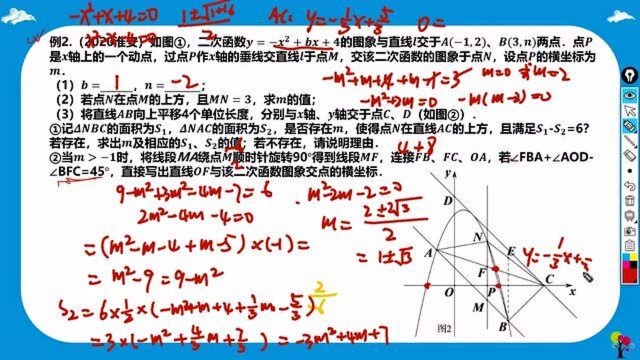 -x²+x+4=0
AC: y=-1/3x+5/3
0=
例2.(2020淮安)如图①，二次函数y=-x²+bx+4的图象与直线l交于A(-1,2)、B(3,n)两点．点P
是x轴上的一个动点，过点P作x轴的垂线交直线l于点M，交该二次函数的图象于点N，设点P的横坐标为
m．
-m²+m+4+m-1=3
m=0或m=2
(1) b=1，n=-2；
(2) 若点N在点M的上方，且MN=3，求m的值；
-m²+2m=0
-m(m-2)=0
(3) 将直线AB向上平移4个单位长度，分别与x轴、y轴交于点C、D（如图②）．
①记△NBC的面积为S₁，△NAC的面积为S₂，是否存在m，使得点N在直线AC的上方，且满足S₁-S₂=6?
若存在，求出m及相应的S₁、S₂的值；若不存在，请说明理由．
②当m＞-1时，将线段MA绕点M顺时针旋转90°得到线段MF，连接FB、FC、OA，若∠FBA+∠AOD-
∠BFC=45°，直接写出直线OF与该二次函数图象交点的横坐标．
9-m²+3m²-4m-7=6
m²-2m-2=0
2m²-4m-4=0
m=(2±2√3)/2
=1±√3
=(m²-m-4+m-5)×(-1)=
=m²-9=9-m²
S₂=6×1/2×(-m²+m+4+1/3m-5/3)
=3×(-m²+4/3m+7/3)=-3m²+4m+7
y
D
N
A
E
y=-1/3x+5/3
F
O
P
C
x
M
B
图2